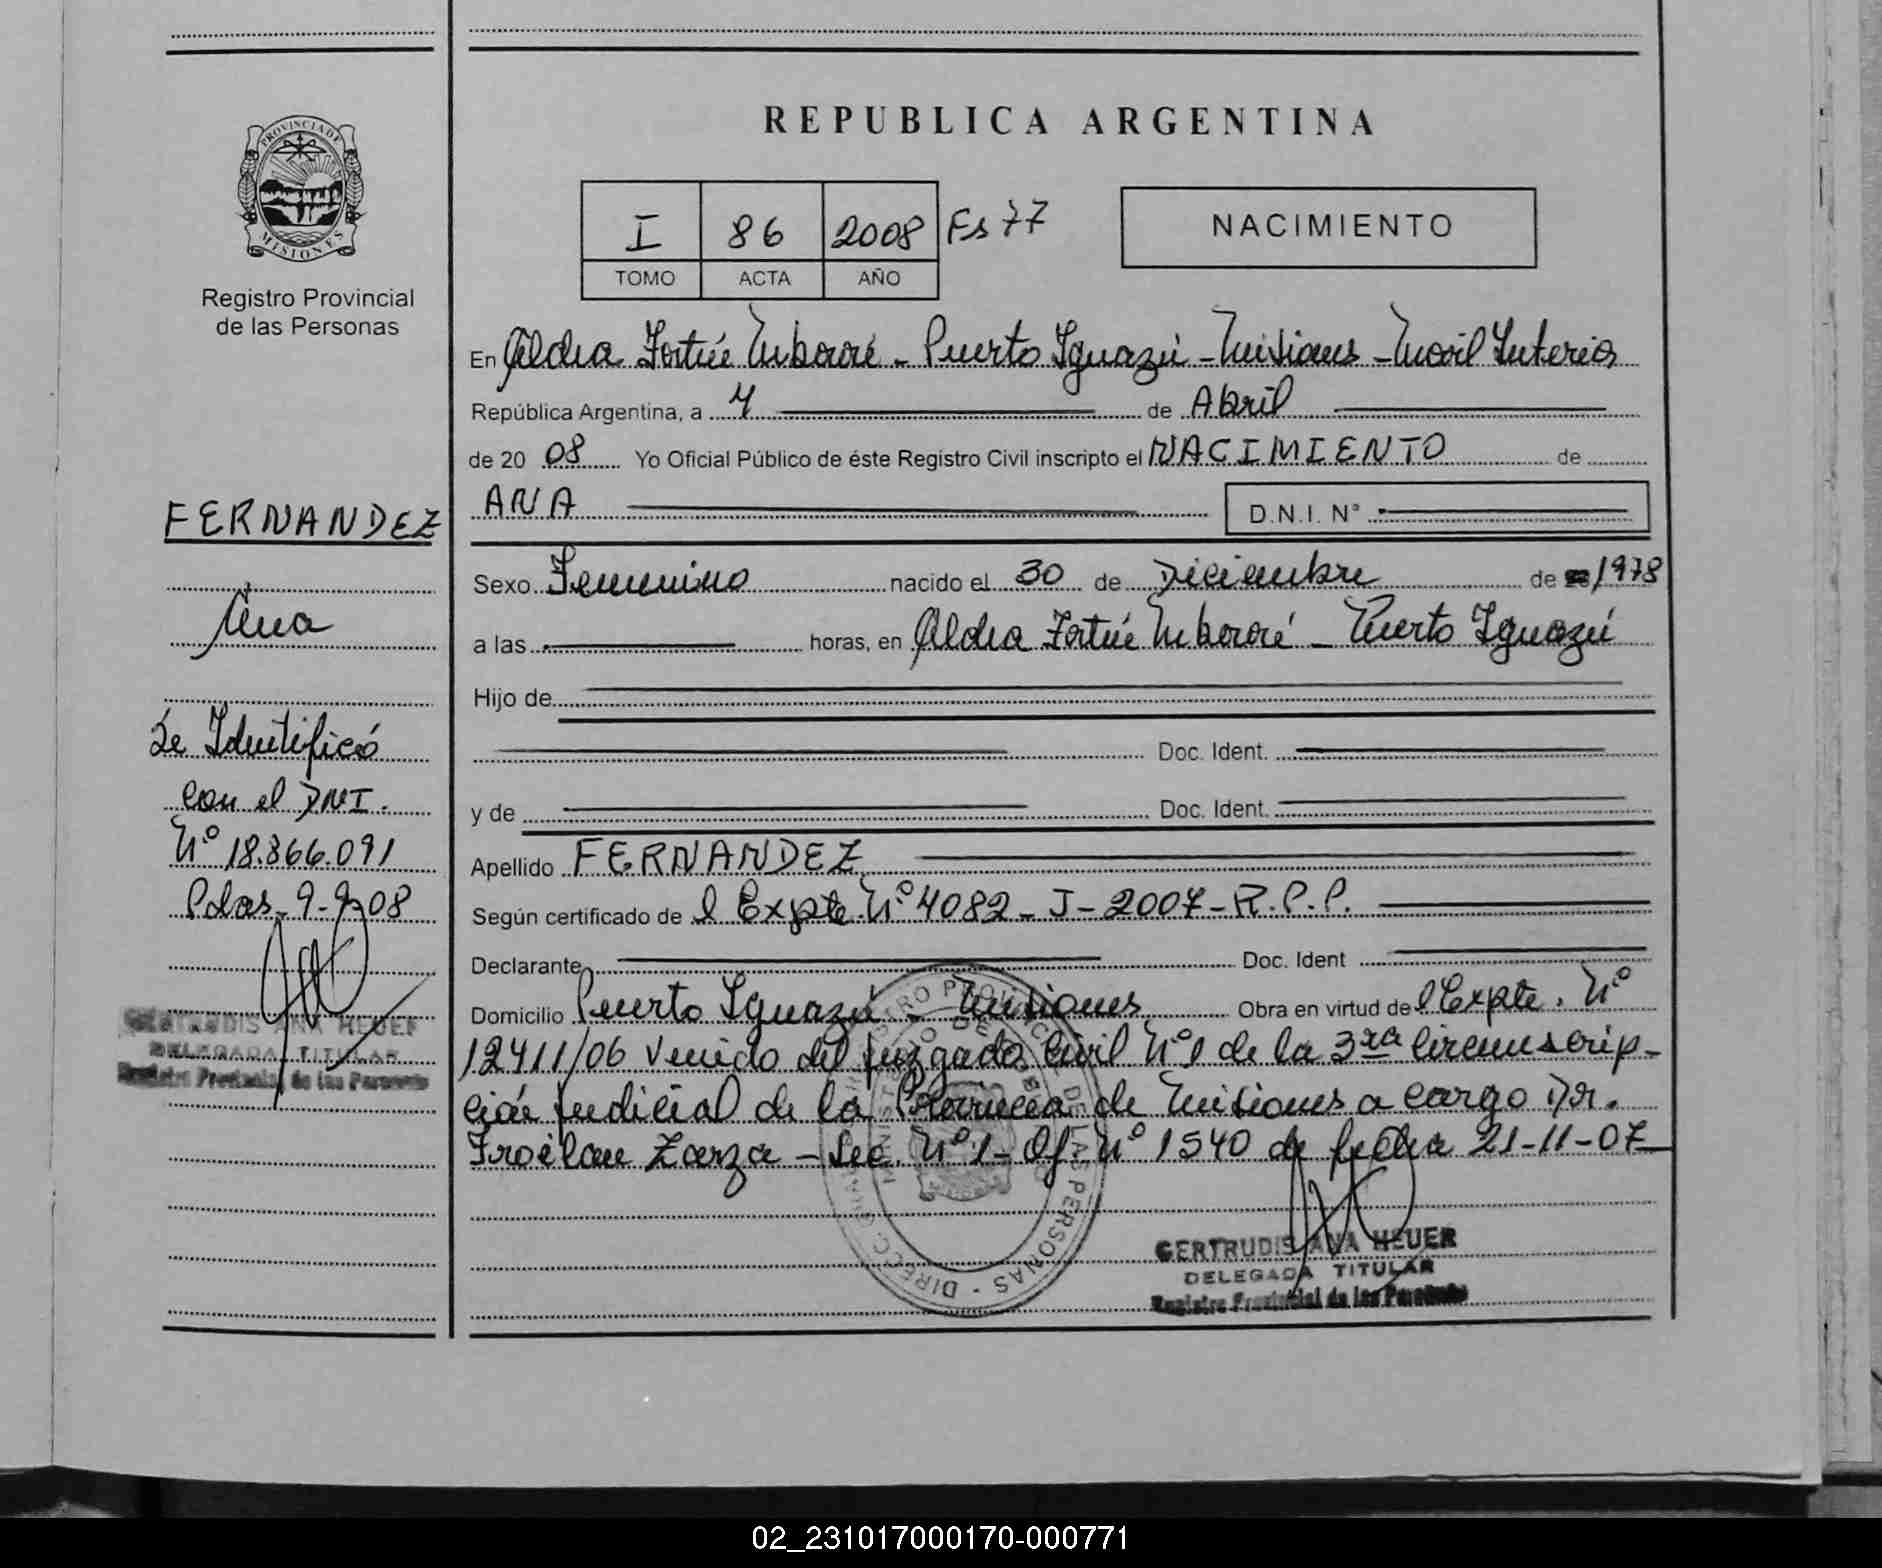 PROVINCIA DE
MISIONES
Registro Provincial
de las Personas
FERNANDEZ
Ana
Se Identificó
con el DNI.
Nº 18.866.091
Pdas. 9-9-08
GERTRUDIS ANA HEUER
DELEGADA TITULAR
Registro Provincial de las Personas
REPUBLICA ARGENTINA
I 86 2008 Fs 77
TOMO ACTA AÑO
NACIMIENTO
En Aldea Fortín Mbororé - Puerto Iguazú - Misiones - Movil Interior
República Argentina, a 4 de Abril
de 20 08 Yo Oficial Público de éste Registro Civil inscripto el NACIMIENTO de
ANA D.N.I. N°
Sexo Femenino nacido el 30 de Diciembre de 1978
a las horas, en Aldea Fortín Mbororé - Puerto Iguazú
Hijo de
Doc. Ident.
y de Doc. Ident.
Apellido FERNANDEZ
Según certificado de l Expte. Nº 4082 - J - 2007 - R.P.P.
Declarante Doc. Ident
Domicilio Puerto Iguazú - Misiones Obra en virtud de l Expte. Nº
12411/06 venido del Juzgado Civil Nº 1 de la 3ra Circunscrip-
ción Judicial de la Provincia de Misiones a cargo Dr.
Froilan Zarza - Sec. Nº 1 - Of. Nº 1540 de fecha 21-11-07
GERTRUDIS ANA HEUER
DELEGADA TITULAR
Registro Provincial de las Personas
02_231017000170-000771